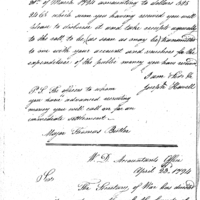 of March 1794 amounting to dollars 525
24.65 which sum you having received you will
please to disburse it and take receipts agreeably
to the call, & to (as soon as may be) transmitted
to me with your account and vouchers for the
expenditure of the public money you have received
I am Sir &c
Joseph Howell
P.S. the officers to whom
you have advanced recruiting
money you will call on for an
immediate settlement.
Major Thomas Butler
W. D. Accountants Office
April 23, 1794
Sir
The Secretary of War has directed